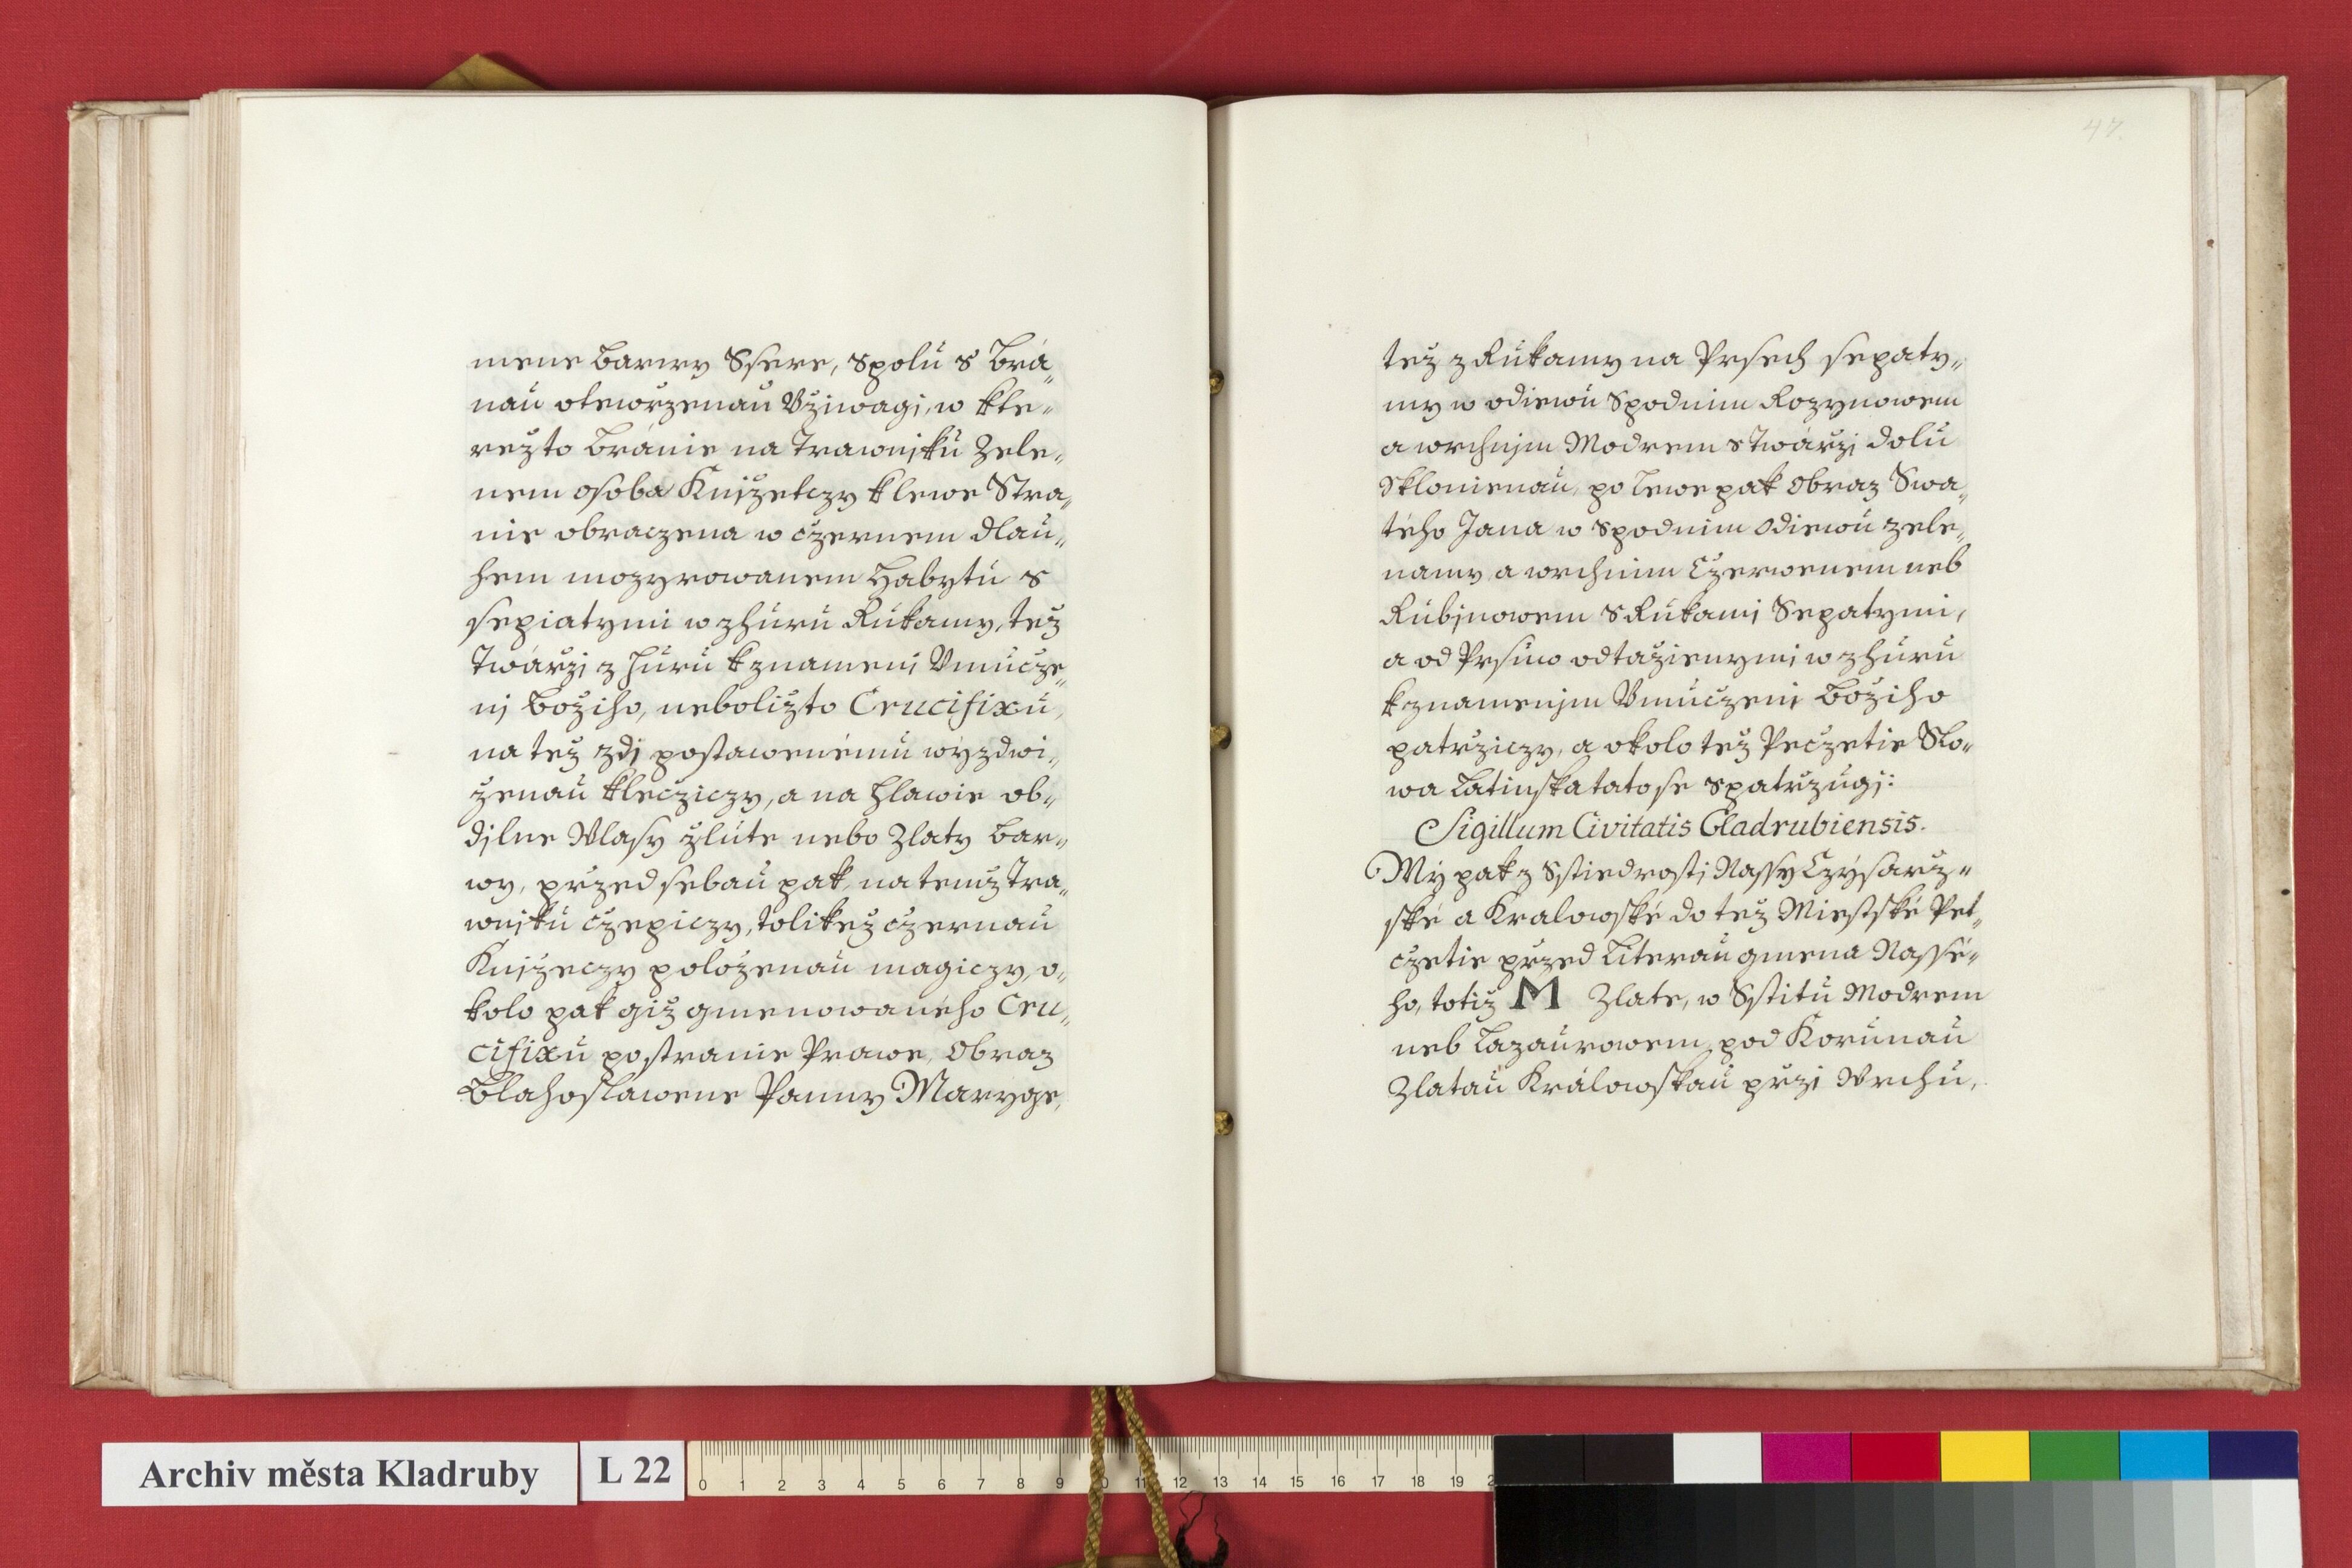 mene Barwy Ssere, spolu s Brá„
nau otewrzenau Užiwagi, w kte„
režto Bránie na Trawniku Zele„
nem osoba Knižetczy k lewe Stra„
nie obraczena w czernem dlau„
hem mozyrowanem Habytu s
sepiatymi wzhuru Rukamy, tež
Twárži zhuru k znameni Vmucze„
nj Božiho, neboližto Crucifixu,
na tež zdj postawenému wyzdwi„
ženau kleczyczy, a na Hlawie ob„
djlne Wlasy žlute nebo Zlaty Bar„
wy, przed sebau pak, na temž Tra„
wniku czepiczy, tolikež czernau
Knižeczy položenau magiczy, o„
kolo pak giž gmenowaného Cru„
cifixu po stranie Prawe, Obraz
Blahoslawene Panny Marye,
47.
tež z Rukamy na Prsech sepaty„
my w odiewu Spodnim Rozynowem
a wrchnjm Modrem s Twárži dolu
sklonienau, po Lewe pak Obraz Swa„
tého Jana w Spodnim Odiewu zele„
namy a wrchnim Czerwenem neb
Rubjnowem s Rukami Sepatymi,
a od Prsuw odtaženymi wzhuru
k znamenjm Vmuczeni Božiho
patrziczy, a okolo též Peczetie Slo„
wa Latinska tato se spatrzugj:
Sigillum Civitatis Cladrubiensis.
My pak z Sstiedrosti Nassy Czysarz„
ské a Kralowské do též Miestské Pet„
czetie przed Literau gmena Nassé„
ho, totiž M Zlate, w Sstitu Modrem
neb Lazaurowem, pod Korunau
Zlatau Králowskau przi Wrchu,
Archiv města Kladruby
L 22
0 1 2 3 4 5 6 7 8 9 0 11 12 13 14 15 16 17 18 19 2